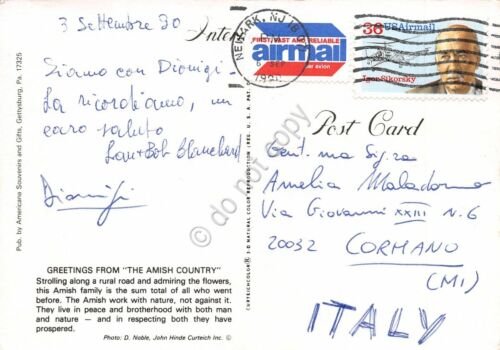 3 Settembre 90
Siamo con Dionigi -
La ricordiamo, un
caro saluto
Lou + Bob Blanchard
Dionigi
GREETINGS FROM "THE AMISH COUNTRY"
Strolling along a rural road and admiring the flowers,
this Amish family is the sum total of all who went
before. The Amish work with nature, not against it.
They live in peace and brotherhood with both man
and nature — and in respecting both they have
prospered.
Photo: D. Noble, John Hinde Curteich Inc. ©
Pub. by Americana Souvenirs and Gifts, Gettysburg, Pa. 17325
CURTEICHCOLOR® 3-D NATURAL COLOR REPRODUCTION (REG. U.S.A. PAT.
do not copy
NEWARK, NJ
1990
FIRST, FAST AND RELIABLE
airmail
par avion
36 USAirmail
Igor Sikorsky
Post Card
Gent.ma Sig.ra
Amelia Maladorno
Via Giovanni XXIII N. 6
20032 CORMANO
(MI)
ITALY